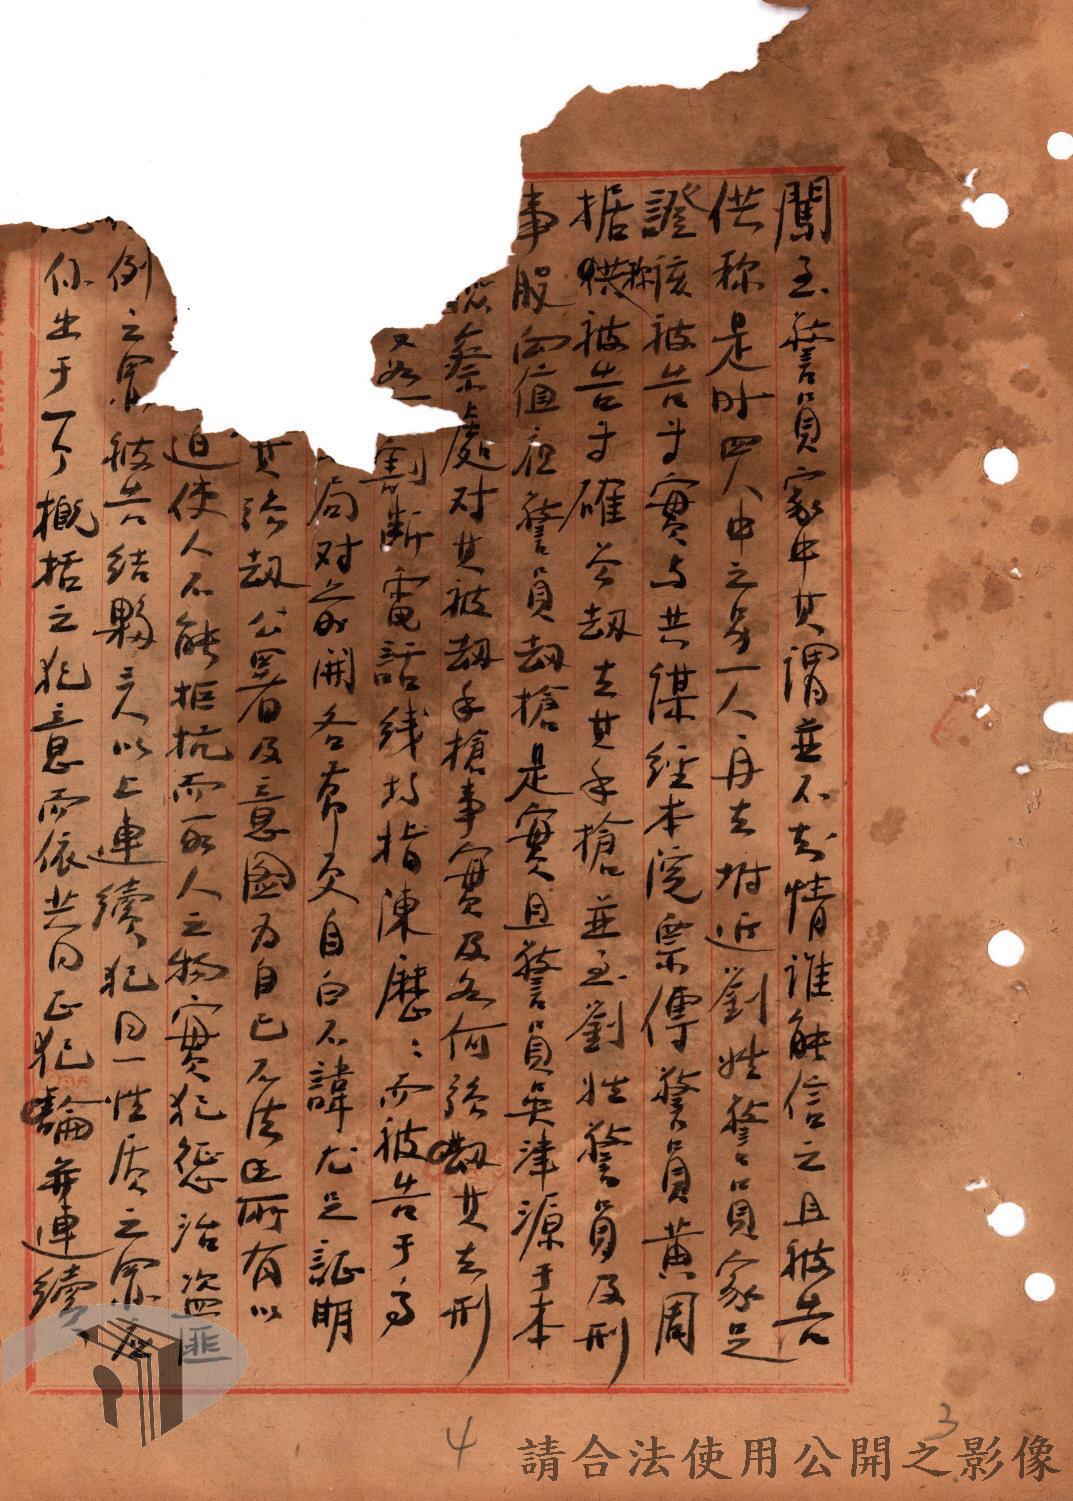 闖至警員家中其謂並不知情誰能信之且被告
供称是时四人中之另一人再去附近劉姓警員家足
證該被告等實与共謀經本院票傳警員黃周
据供称被告等確会劫去其手槍並至劉姓警員及刑
事股向值夜警員劫槍是實且警員吳津源于本
察處对其被劫手槍事實及如何強劫其去刑
割断電話线均指陳歷歷而被告于
局对前開各节又自白不諱尤足証明
其強劫公署及意圖为自己不法所有以
迫使人不能拒抗而取人之物實犯懲治盜匪
例之罪被告結夥三人以上連續犯同一性质之罪应
係出于一个概括之犯意而依共同正犯論并連續
4
3
請合法使用公開之影像